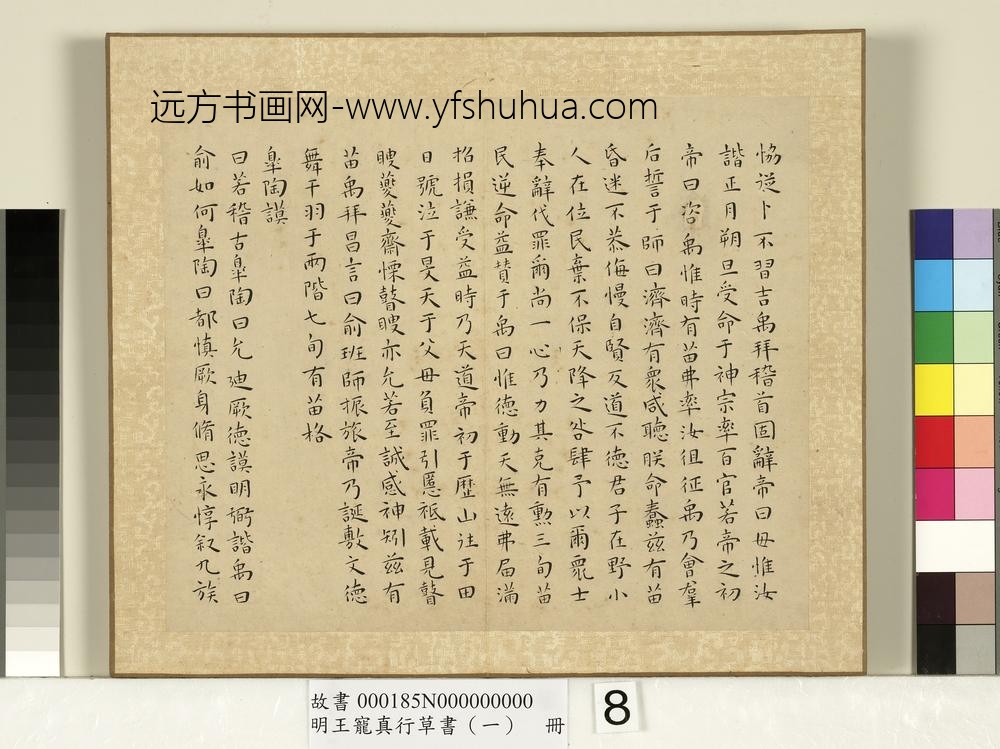 远方书画网-www.yfshuhua.com
恊從卜不習吉禹拜稽首固辭帝曰毋惟汝
諧正月朔旦受命于神宗率百官若帝之初
帝曰咨禹惟時有苗弗率汝徂征禹乃會羣
后誓于師曰濟濟有衆咸聽朕命蠢兹有苗
昏迷不恭侮慢自賢反道不德君子在野小
人在位民棄不保天降之咎肆予以爾衆士
奉辭伐罪爾尚一心乃力其克有勲三旬苗
民逆命益賛于禹曰惟德動天無遠弗届滿
招損謙受益時乃天道帝初于歷山往于田
日號泣于旻天于父母負罪引慝祗載見瞽
瞍夔夔齋慄瞽瞍亦允若至誠感神矧兹有
苗禹拜昌言曰俞班師振旅帝乃誕敷文德
舞干羽于兩階七旬有苗格
皐陶謨
曰若稽古皐陶曰允迪厥德謨明弼諧禹曰
俞如何皐陶曰都慎厥身脩思永惇叙九族
故書 000185N000000000
明王寵真行草書（一） 冊
8